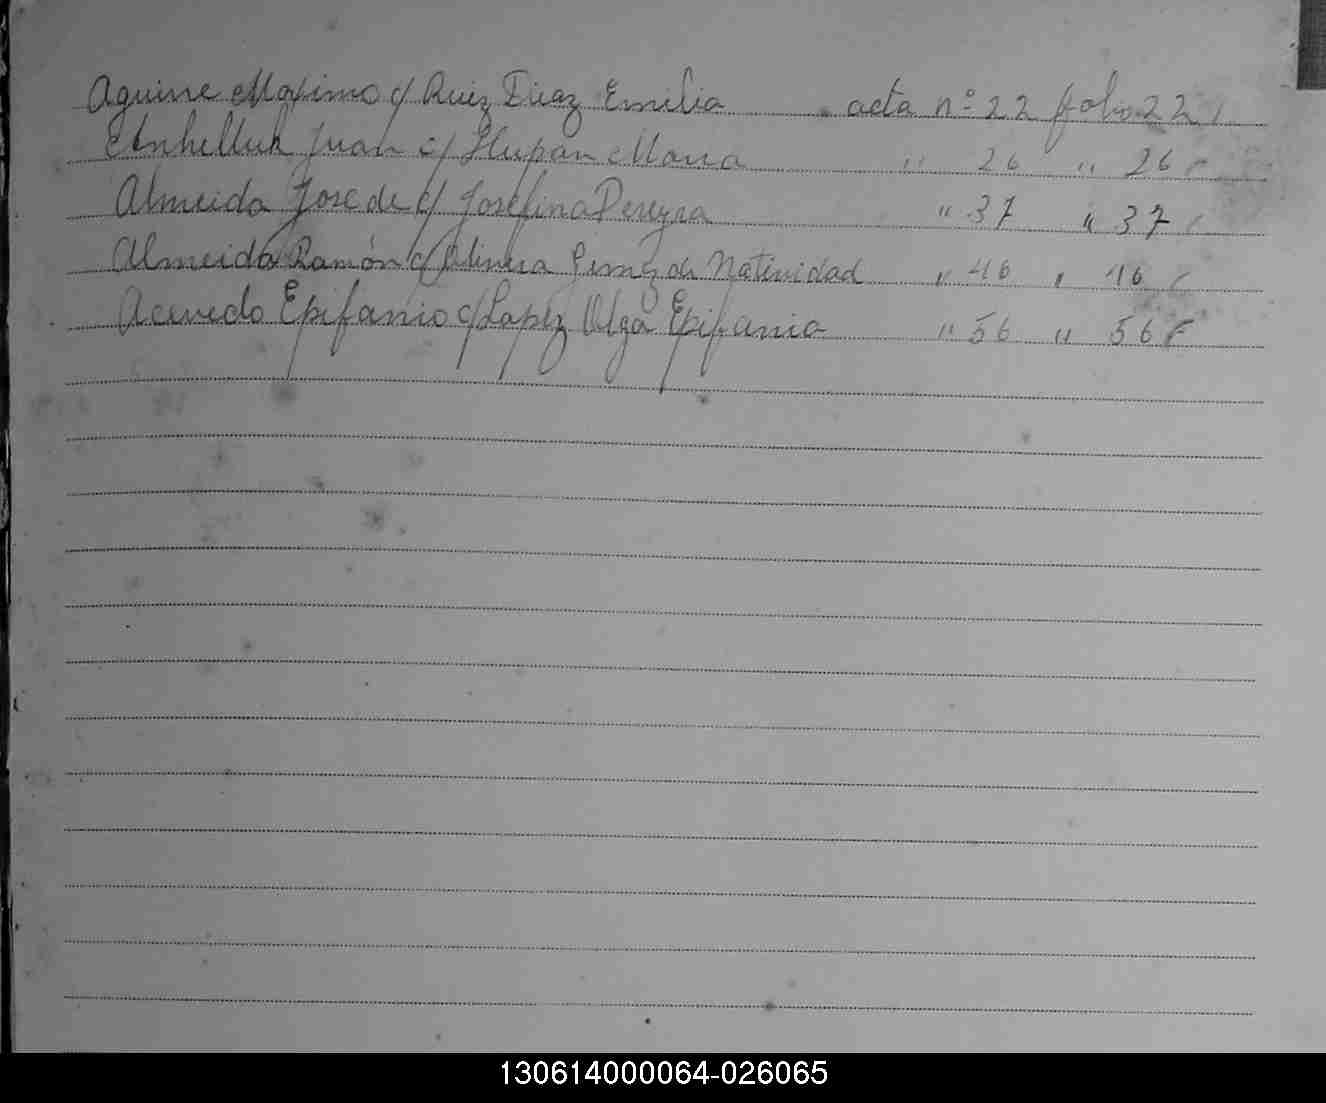 Aguirre Maximo c/ Ruiz Diaz Emilia acta nº 22 folio 22
Juan c/ Maria " 26 " 26
Almeida Jose de c/ Josefina Pereyra " 37 " 37
Almeida Ramón c/ de Natividad " 46 " 46
Acevedo Epifanio c/ Lopez Olga Epifania " 56 " 56
130614000064-026065